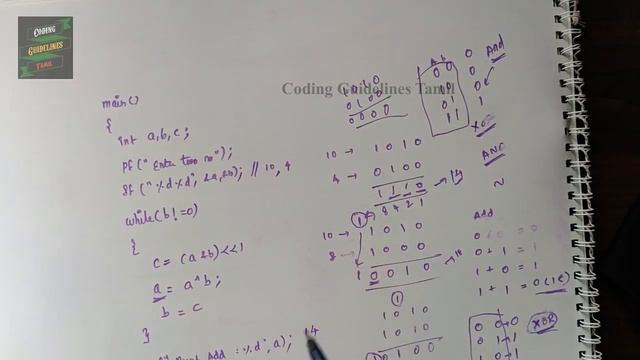 Coding
Guidelines
Tamil
Coding Guidelines Tamil
main()
{
int a,b,c;
Pf(" Enter two no");
Sf(" %d %d", &a,&b); // 10, 4
while(b!=0)
{
c = (a&b)<<1
a = a^b;
b = c
}
Add :%d", a); 14
1 0 1 0
0 1 0 0
0 0 0 0
A b 0 And
0 0 0
0
0 1
1 1 1
XOR
AND
~
10 → 1 0 1 0
4 → 0 1 0 0
1 1 1 0 → 14
8 4 2 1
1
10 → 1 0 1 0
8 → 1 0 0 0
1 0 0 1 0
1
1 0 1 0
1 0 1 0
0 1 0 0
Add
0 + 0 = 0
0 + 1 = 1
1 + 0 = 1
1 + 1 = 0 (1c)
0 0 → 0 XOR
0 1 → 1